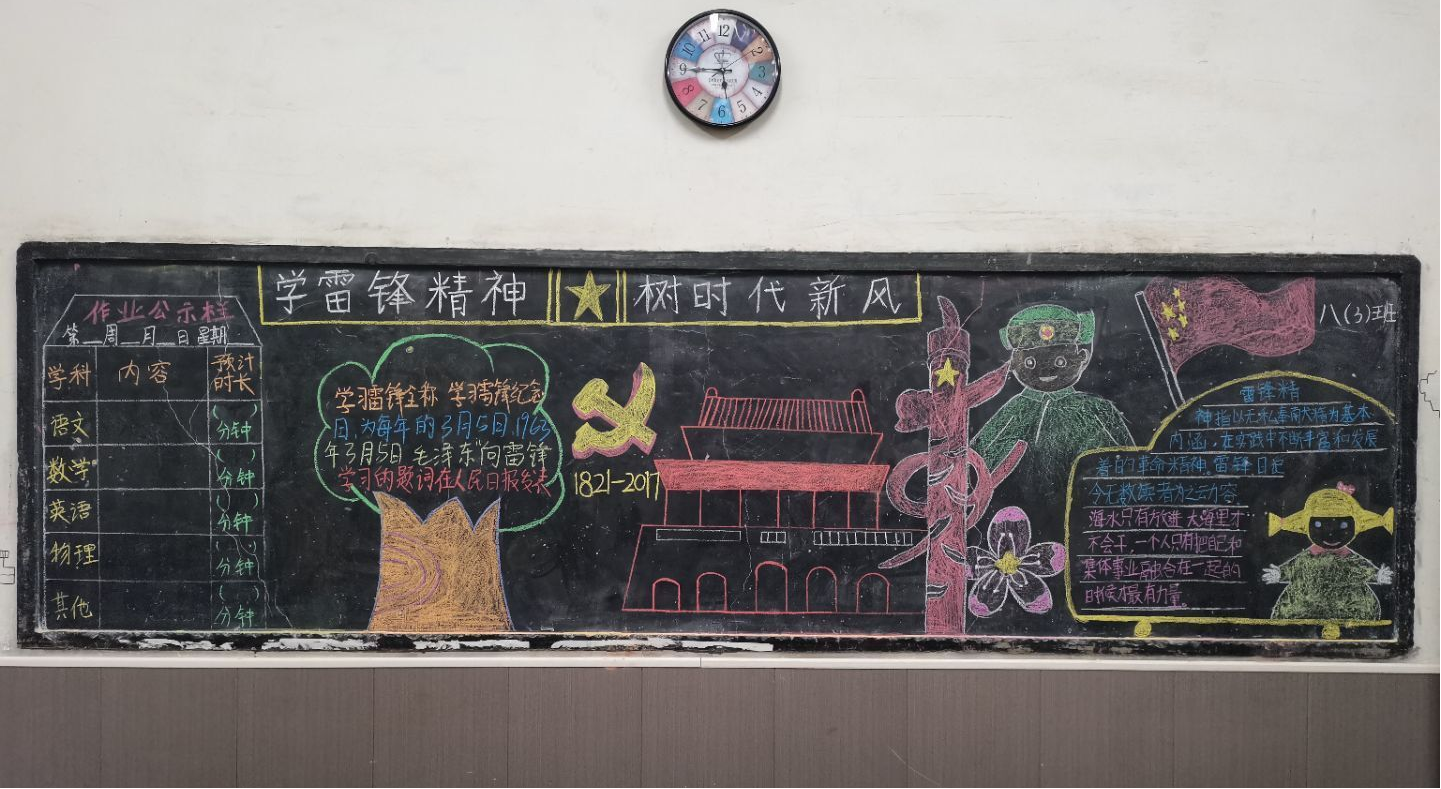 12
11
10
9
8
7
6
5
4
3
2
学雷锋精神
树时代新风
八(3)班
作业公示栏
第_周_月_日星期
学科 内容 预计时长
语文 ( )分钟
数学 ( )分钟
英语 ( )分钟
物理 ( )分钟
其他 ( )分钟
学习雷锋全称 学习雷锋纪念
日,为每年的3月5日,1963
年3月5日 毛泽东"向雷锋
学习的题词在人民日报发表
1821-2017
雷锋精
神指以无私奉南大标为基本
内涵,在实践中不断丰富和发展
着的革命精神,雷锋日记
海水只有方进 大海里才
不会干,一个人只有把自己和
集体事业融合在一起的
时候才最有力量。